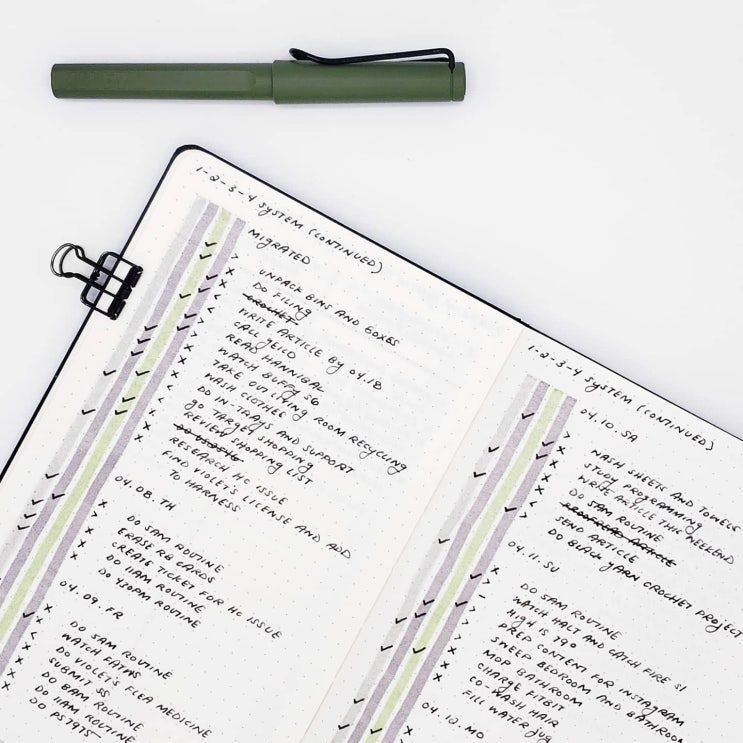 1-2-3-4 SYSTEM (CONTINUED)
MIGRATED
UNPACK BINS AND BOXES
DO FILING
CROCHET
WRITE ARTICLE BY 04.18
CALL GEICO
READ HANNIBAL
WATCH BUFFY S6
TAKE OUT LIVING ROOM RECYCLING
WASH CLOTHES
DO IN-TRAYS AND SUPPORT
GO TARGET SHOPPING
REVIEW SHOPPING LIST
DO
RESEARCH HC ISSUE
FIND VIOLET'S LICENSE AND ADD
TO HARNESS
04.08. TH
DO 5AM ROUTINE
ERASE RB CARDS
CREATE TICKET FOR HC ISSUE
DO 11AM ROUTINE
DO 430PM ROUTINE
04.09. FR
DO 5AM ROUTINE
WATCH FATWS
DO VIOLET'S FLEA MEDICINE
SUBMIT SS
DO 8AM ROUTINE
DO 11AM ROUTINE
DO PST975
1-2-3-4 SYSTEM (CONTINUED)
04.10. SA
WASH SHEETS AND TOWELS
STUDY PROGRAMMING
WRITE ARTICLE THIS WEEKEND
DO 5AM ROUTINE
PROOFREAD ARTICLE
SEND ARTICLE
DO BLACK YARN CROCHET PROJECT
04.11. SU
DO 5AM ROUTINE
WATCH HALT AND CATCH FIRE S1
HIGH IS 79°
PREP CONTENT FOR INSTAGRAM
SWEEP BEDROOM AND BATHROOM
MOP BATHROOM
CHARGE FITBIT
CO-WASH HAIR
FILL WATER JUG
04.12. MO